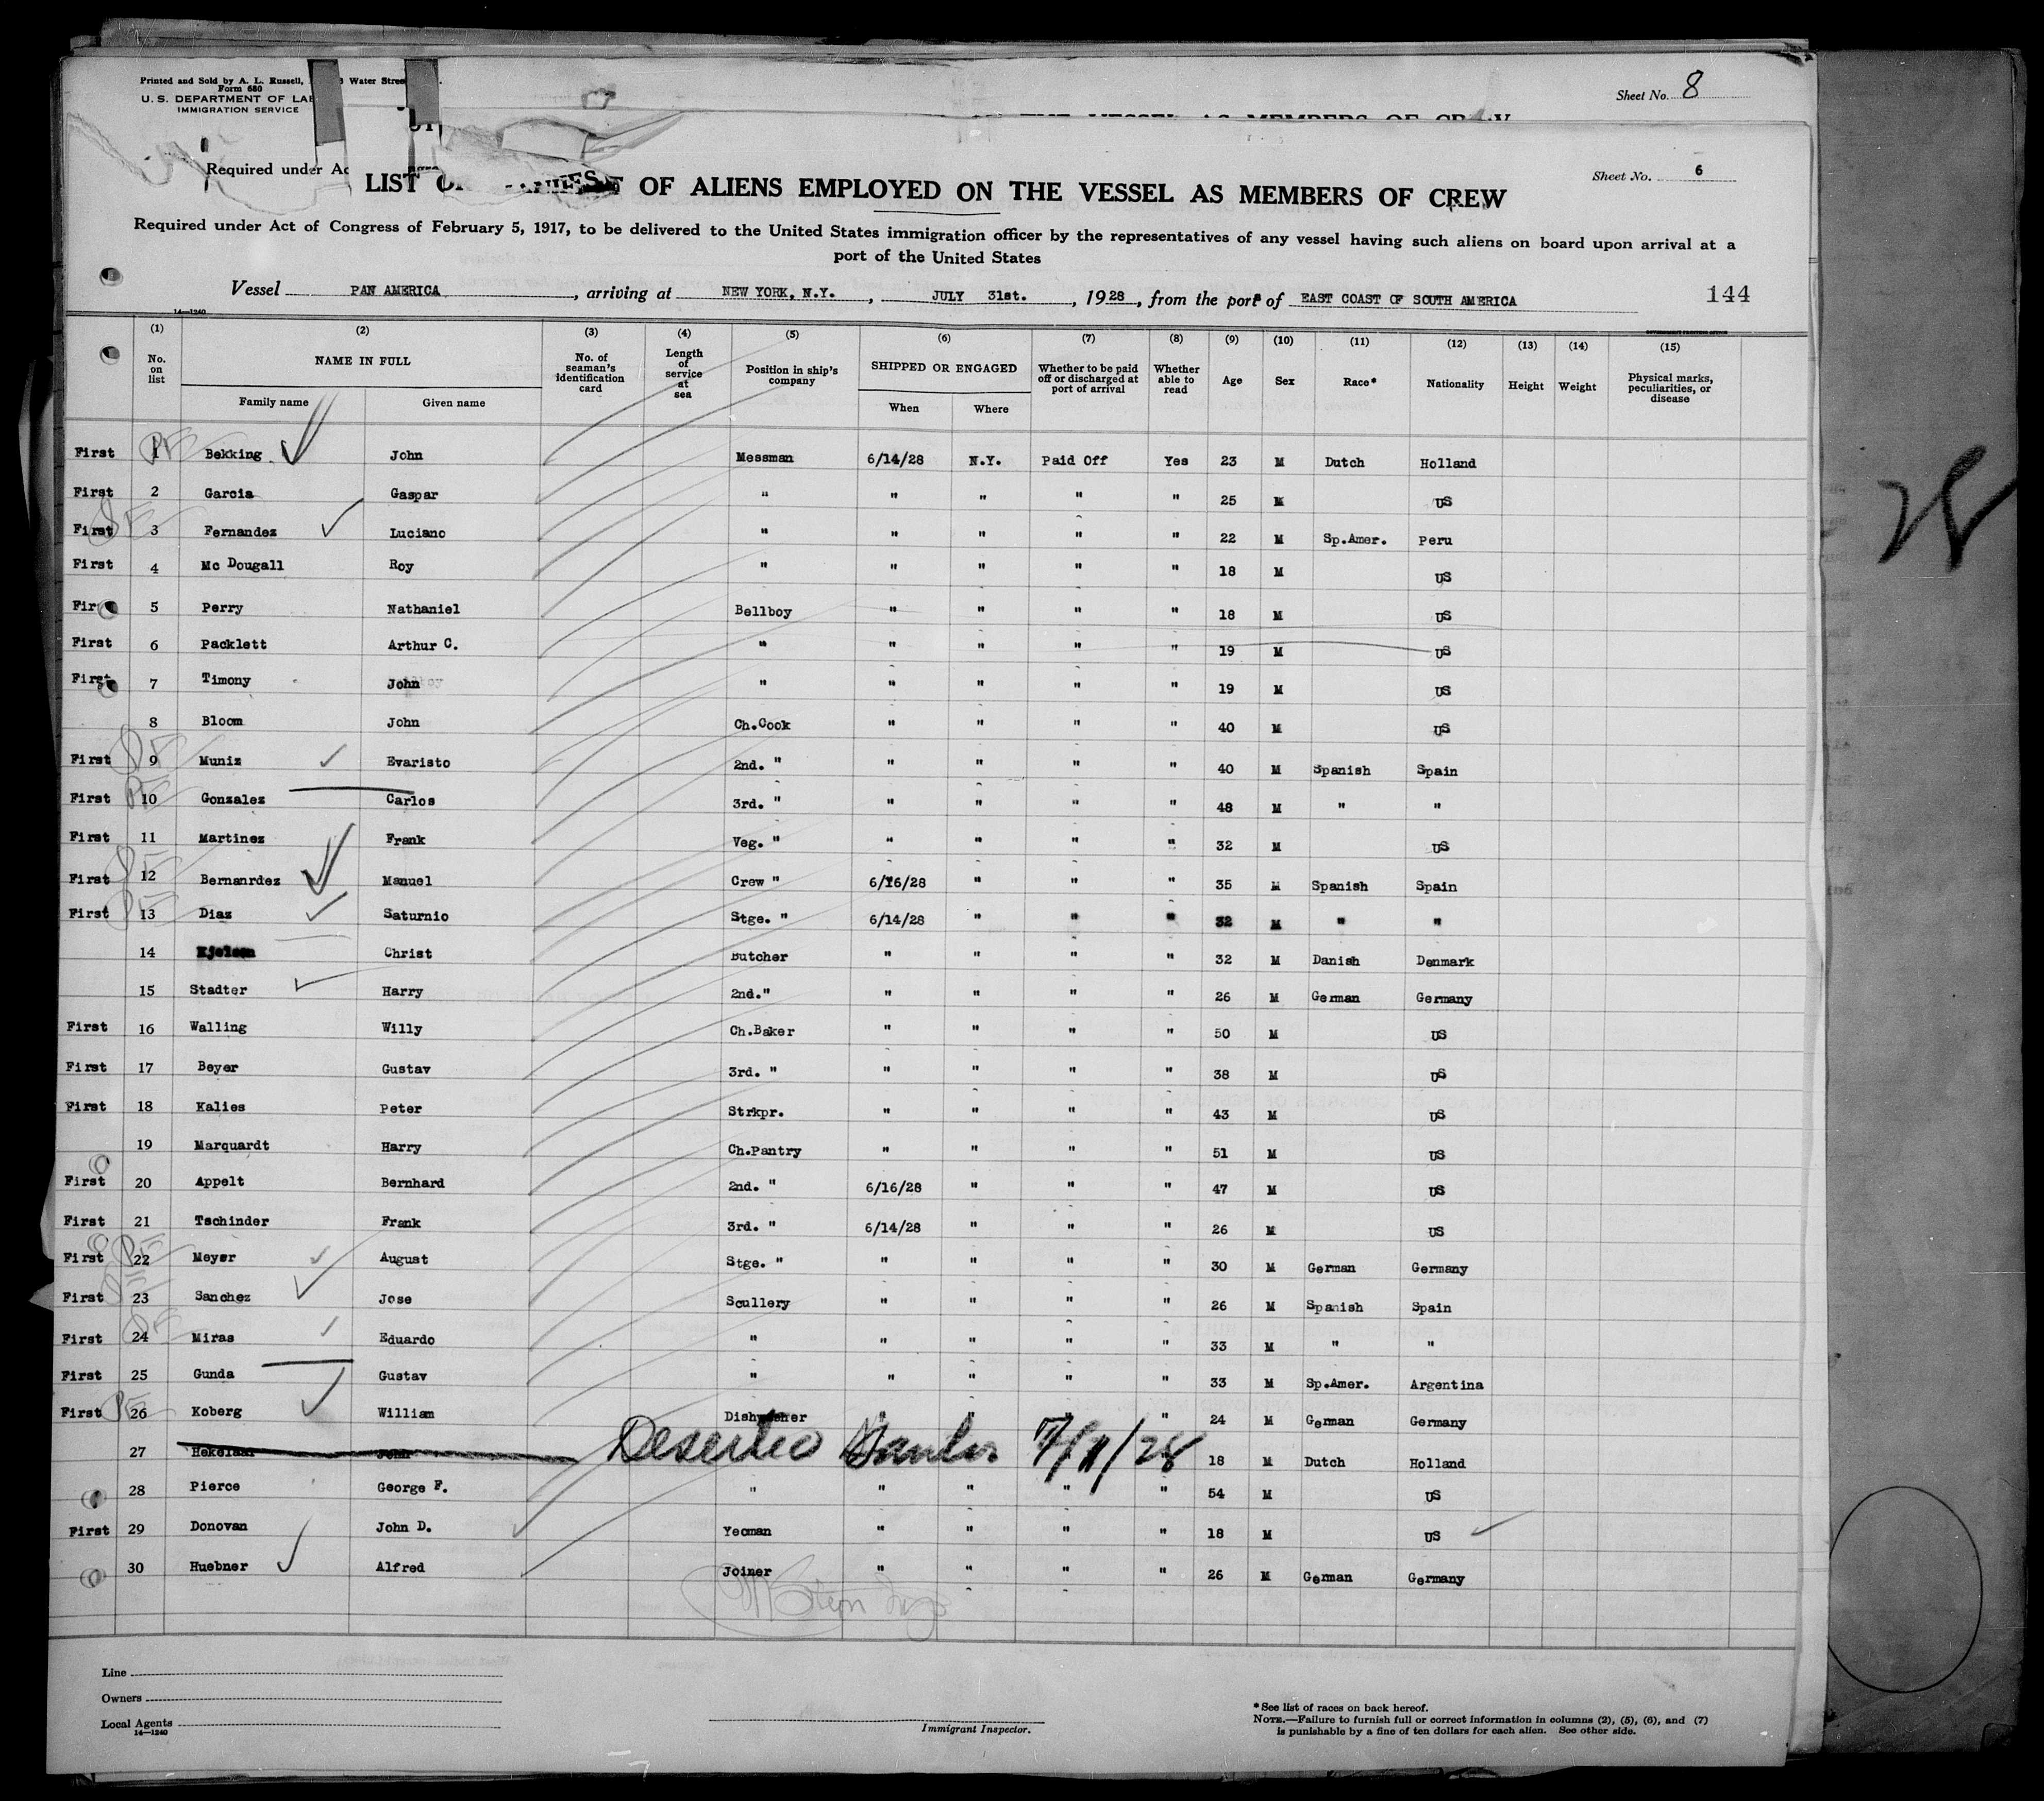 Printed and Sold by A. L. Russell, Water Stree
Form 680
U. S. DEPARTMENT OF LAB
IMMIGRATION SERVICE
Sheet No. 8
Required under Ac
Sheet No. 6
LIST OF ALIENS EMPLOYED ON THE VESSEL AS MEMBERS OF CREW
Required under Act of Congress of February 5, 1917, to be delivered to the United States immigration officer by the representatives of any vessel having such aliens on board upon arrival at a
port of the United States
Vessel PAN AMERICA, arriving at NEW YORK, N.Y., JULY 31st., 1928, from the port of EAST COAST OF SOUTH AMERICA 144
14—1240
(1) (2) (3) (4) (5) (6) (7) (8) (9) (10) (11) (12) (13) (14) (15)
No. on list NAME IN FULL Family name Given name No. of seaman's identification card Length of service at sea Position in ship's company SHIPPED OR ENGAGED When Where Whether to be paid off or discharged at port of arrival Whether able to read Age Sex Race* Nationality Height Weight Physical marks, peculiarities, or disease
First 1 Bekking John Messman 6/14/28 N.Y. Paid Off Yes 23 M Dutch Holland
First 2 Garcia Gaspar " " " " " 25 M US
First 3 Fernandez Luciano " " " " " 22 M Sp.Amer. Peru
First 4 Mc Dougall Roy " " " " " 18 M US
First 5 Perry Nathaniel Bellboy " " " " 18 M US
First 6 Packlett Arthur C. " " " " " 19 M US
First 7 Timony John " " " " " 19 M US
8 Bloom John Ch.Cook " " " " 40 M US
First 9 Muniz Evaristo 2nd. " " " " " 40 M Spanish Spain
First 10 Gonzalez Carlos 3rd. " " " " " 48 M " "
First 11 Martinez Frank Veg. " " " " " 32 M US
First 12 Bernanrdez Manuel Crew " 6/16/28 " " " 35 M Spanish Spain
First 13 Diaz Saturnio Stge. " 6/14/28 " " " 32 M " "
14 Christ Butcher " " " " 32 M Danish Denmark
15 Stadter Harry 2nd." " " " " 26 M German Germany
First 16 Walling Willy Ch.Baker " " " " 50 M US
First 17 Beyer Gustav 3rd. " " " " " 38 M US
First 18 Kalies Peter Strkpr. " " " " 43 M US
19 Marquardt Harry Ch.Pantry " " " " 51 M US
First 20 Appelt Bernhard 2nd. " 6/16/28 " " " 47 M US
First 21 Tschinder Frank 3rd. " 6/14/28 " " " 26 M US
First 22 Meyer August Stge. " " " " " 30 M German Germany
First 23 Sanchez Jose Scullery " " " " 26 M Spanish Spain
First 24 Miras Eduardo " " " " " 33 M " "
First 25 Gunda Gustav " " " " " 33 M Sp.Amer. Argentina
First 26 Koberg William Dishwasher " " " " 24 M German Germany
27 Hekelaar John Deserted Santos 7/11/28 18 M Dutch Holland
28 Pierce George F. " " " " " 54 M US
First 29 Donovan John D. Yeoman " " " " 18 M US
30 Huebner Alfred Joiner " " " " 26 M German Germany
Line
Owners
Local Agents
14—1240
Immigrant Inspector.
*See list of races on back hereof.
NOTE.—Failure to furnish full or correct information in columns (2), (5), (6), and (7)
is punishable by a fine of ten dollars for each alien. See other side.